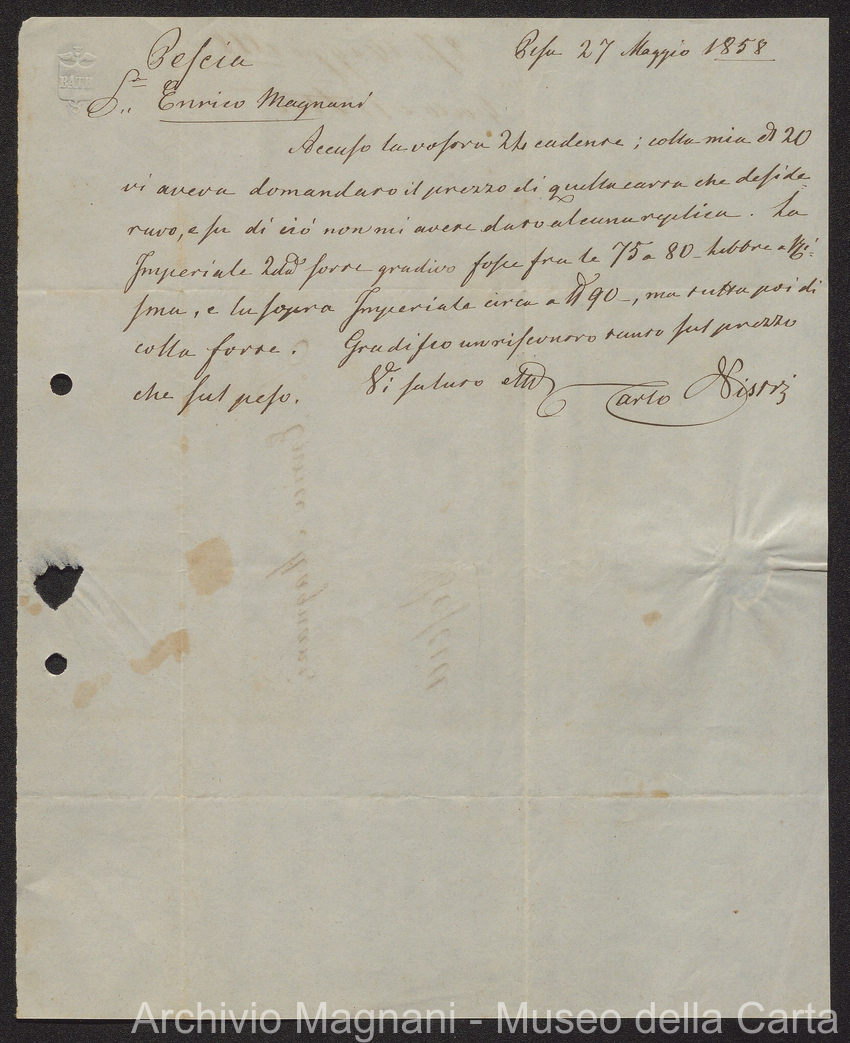 BATH
Pescia Pisa 27 Maggio 1858
Sr. Enrico Magnani
Accuso la vostra 24 cadente; colla mia di 20
vi aveva domandato il prezzo di quella carta che deside=
ravo, e su di ciò non mi avete dato alcuna replica. La
Imperiale 2da forte gradivo fosse fra le 75 a 80 - libbre a Ri=
sma, e la sopra Imperiale circa a ℔ 90 -, ma tutta poi di
colla forte. Gradisco un riscontro tanto sul prezzo
che sul peso. Vi saluto
Carlo Nistri
Enrico Magnani
Pescia
Archivio Magnani - Museo della Carta